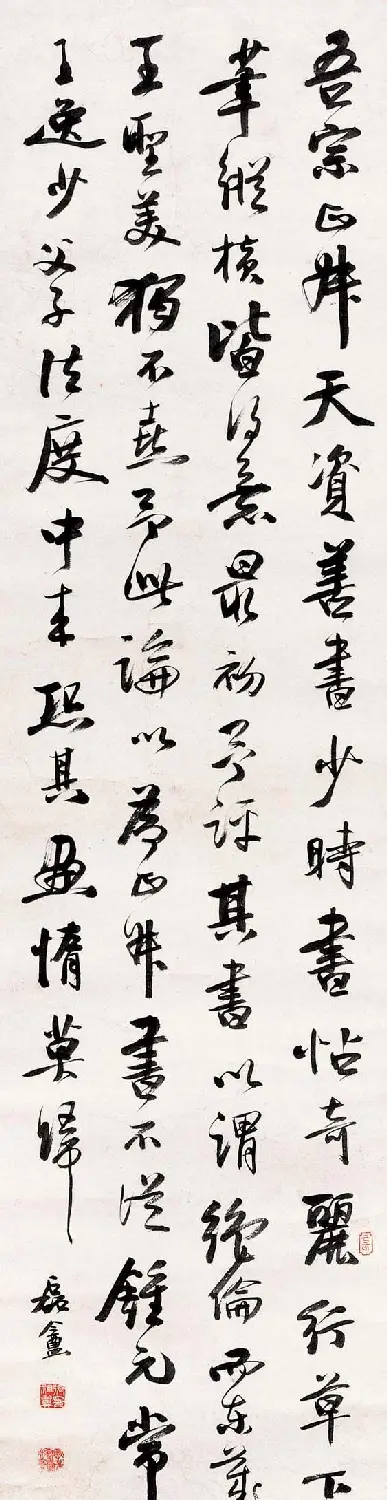 吾宗正叔天資善書少時書帖奇麗行草下
筆縱橫皆得意最初予評其書以謂絕倫而東萊
王聖美獨不喜予此論以為正叔書不從鍾元常
王逸少父子法度中來恐其墨惰莫歸
磊盦